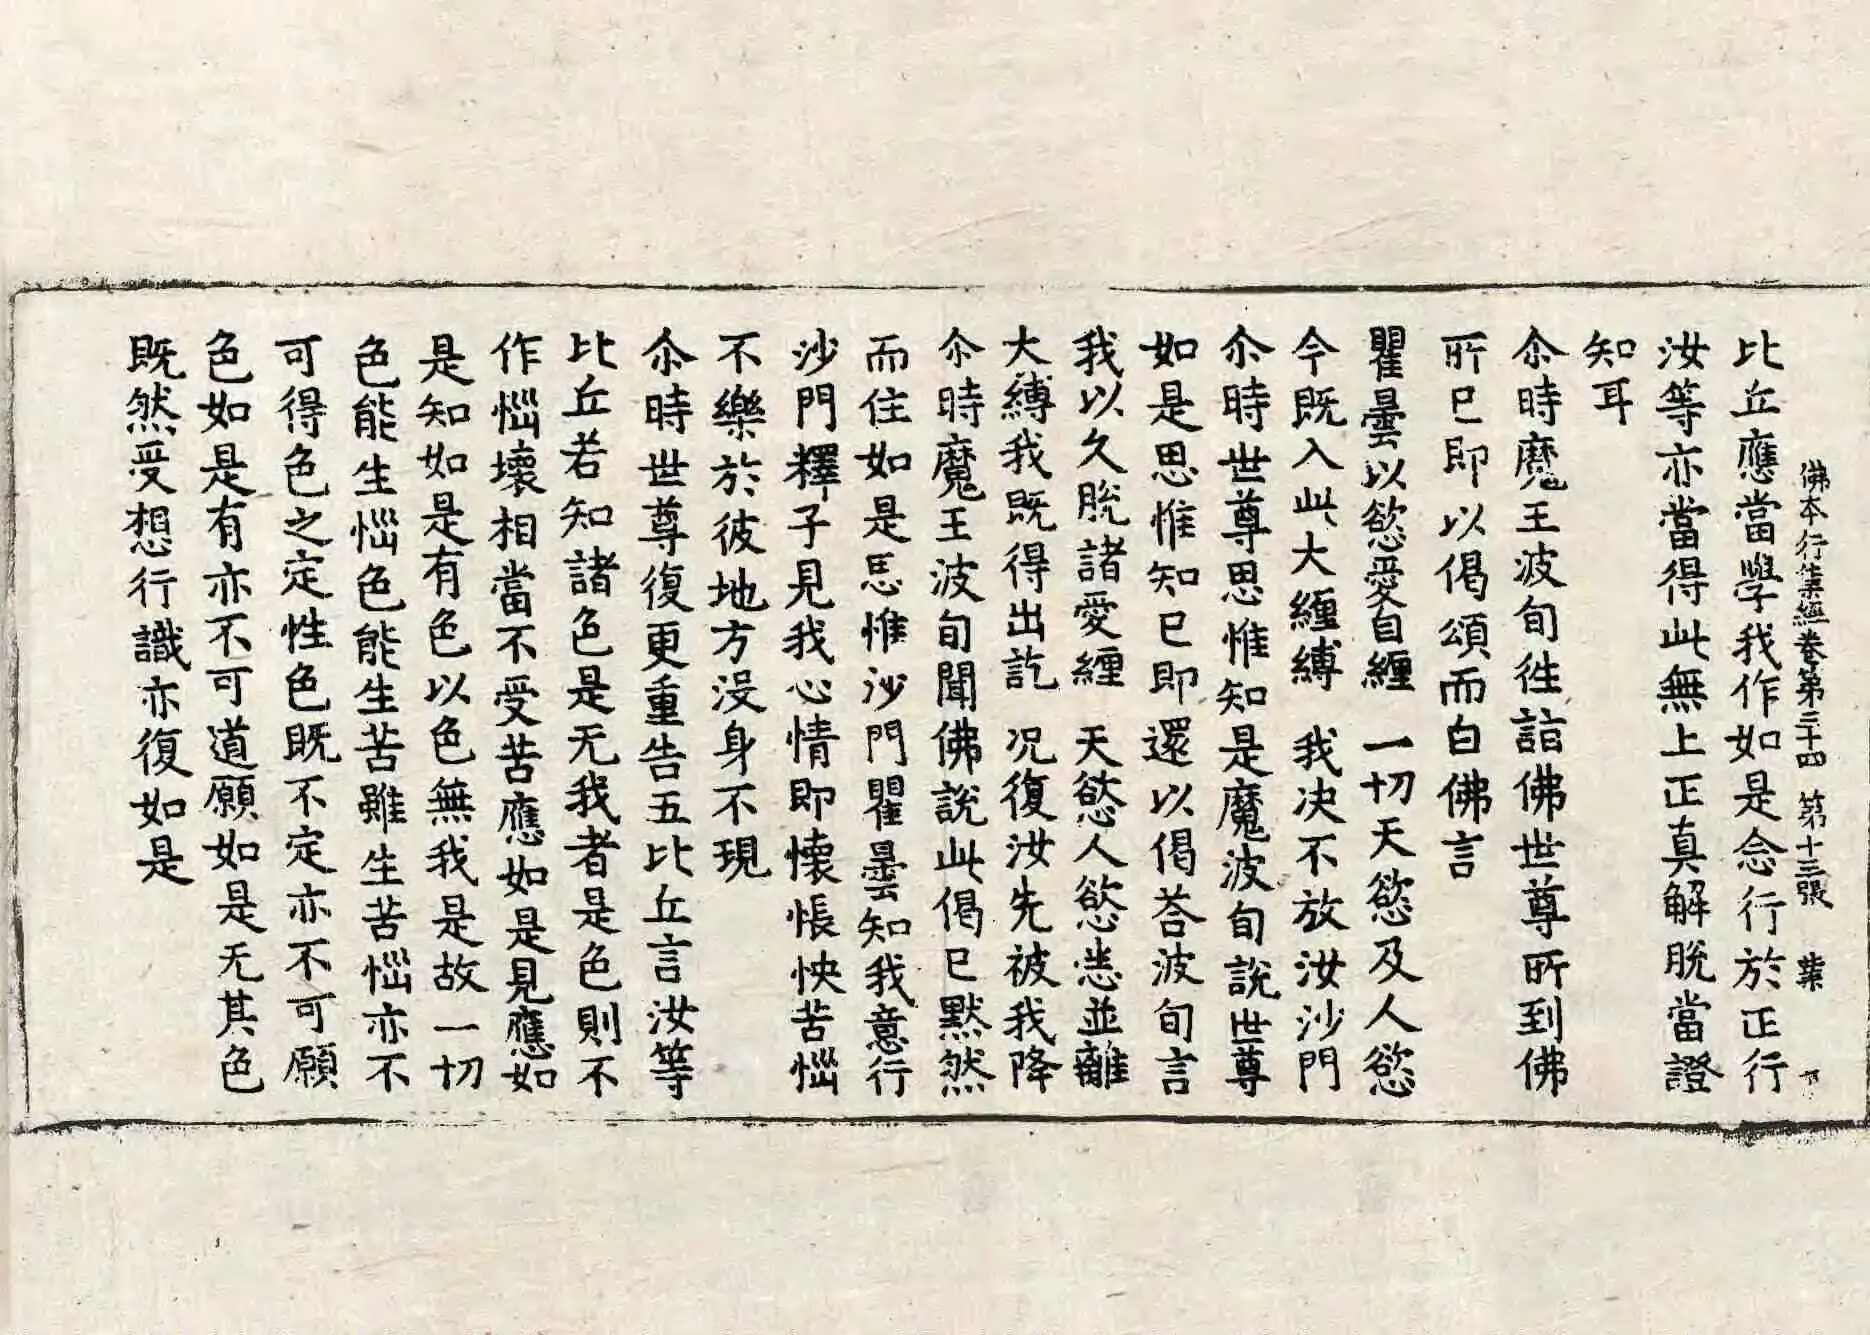 佛本行集經卷第三十四 第十三張 業
比丘應當學我作如是念行於正行
汝等亦當得此無上正真解脫當證
知耳
尒時魔王波旬徃詣佛世尊所到佛
所已即以偈頌而白佛言
瞿曇以慾愛自纏 一切天慾及人慾
今既入此大纏縛 我决不放汝沙門
尒時世尊思惟知是魔波旬說世尊
如是思惟知已即還以偈荅波旬言
我以久脫諸愛纏 天慾人慾悉並離
大縛我既得出訖 况復汝先被我降
尒時魔王波旬聞佛說此偈已默然
而住如是思惟沙門瞿曇知我意行
沙門釋子見我心情即懷悵怏苦惱
不樂於彼地方沒身不現
尒時世尊復更重告五比丘言汝等
比丘若知諸色是无我者是色則不
作惱壞相當不受苦應如是見應如
是知如是有色以色無我是故一切
色能生惱色能生苦雖生苦惱亦不
可得色之定性色既不定亦不可願
色如是有亦不可道願如是无其色
既然受想行識亦復如是